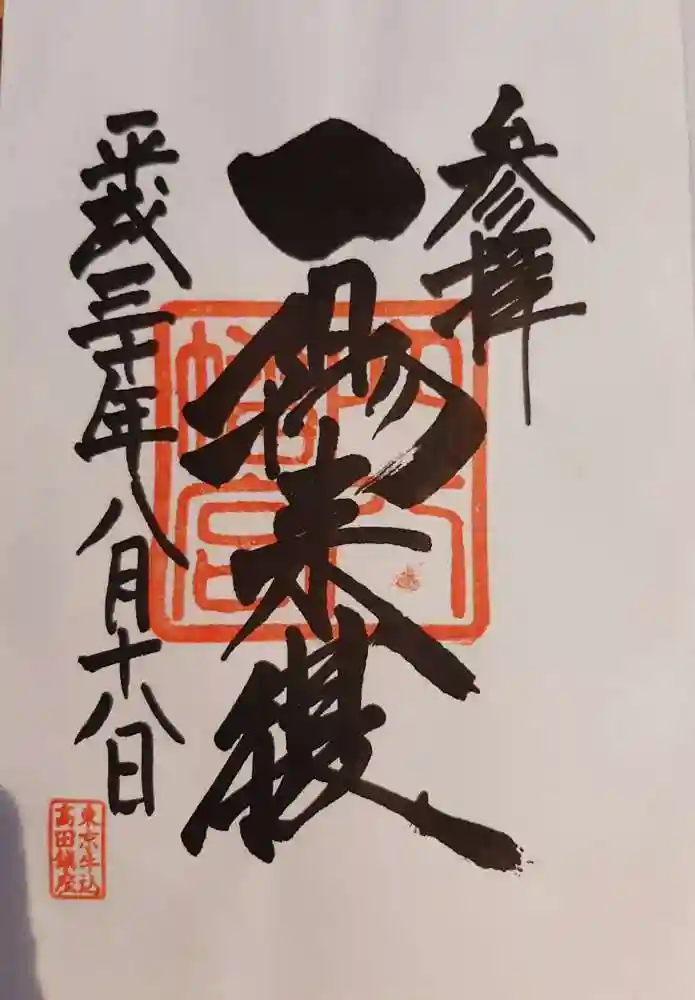 参拝
一陽来復
穴八
幡宮
平成三十年八月十八日
東京牛込
高田鎮座